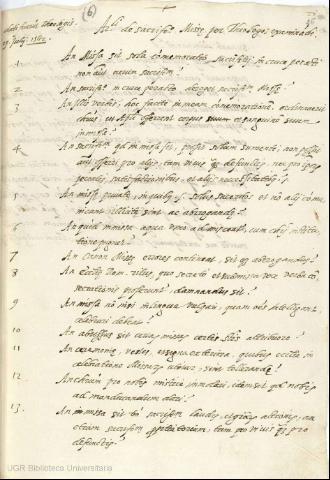 (6)
Arti. de sacrifo. Missæ per Theologos examinandi.
dati fuerunt theologis
19 Julij 1562.
1 An Missa sit sola com̃emoratio sacrificij in cruce peracti
non aũt verum sacrifm̃?
2 An sacrifm̃ in cruce peracto deroget sacrifm̃ Missæ?
3 An illis verbis, hoc facite in meam com̃emorationem. ordinauerit
christus, ut Apĩ offerrent corpus suum et sanguinem suum
in missa?
4 An sacrifm̃ qd in missa fit, prosit soltum sumenti, non possit
offerri pro alijs tam viuis q defunctis, nec pro ipsorum
peccatis, satisfactionibus, et alijs necessitatibus?
5 An missæ priuatæ, in quibus solus sacerdos et nõ alij com̃u-
nicant illicitæ sint ac abrogandæ?
6 An quod in missa aqua vino admisceatur, cum chri institu-
tione pugnet?
7 An Canon Missæ errores contineat, sit q abrogandus?
8 An Eccliæ Rom. ritus, quo secreto et submissa voce verba con-
secrationis proferunt, damnandus sit?
9 An missa nõ nisi in lingua vulgari, quam oẽs intelligant,
celebrari debeat?
10 An abusus sit certas missas certis sctis attribuere?
11 An ceremoniæ, vestes, et signa externa, quibus ecclia in
celebratione Missarum utitur, sint tollendæ?
12 An christum pro nobis misticè immolari, idem sit qd nobis
ad manducandum dari?
13. An missa sit tm̃ sacrifm̃ laudis, et gratiarum actionis, an
etiam sacrifm̃ propitiatorium, tam pro viuis q pro
defunctis?
UGR Biblioteca Universitaria